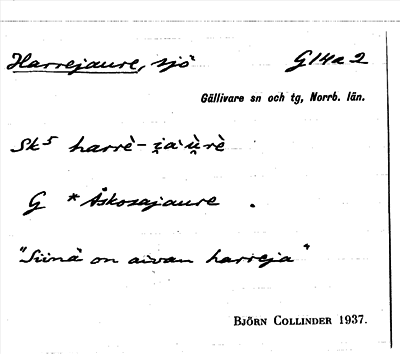 Harrejaure, sjö G14a2
Gällivare sn och tg, Norrb. län.
Sk5 harrè- i̯a`ù̯rè
G * Åskosajaure .
"Siinä on aivan harreja"
BJÖRN COLLINDER 1937.